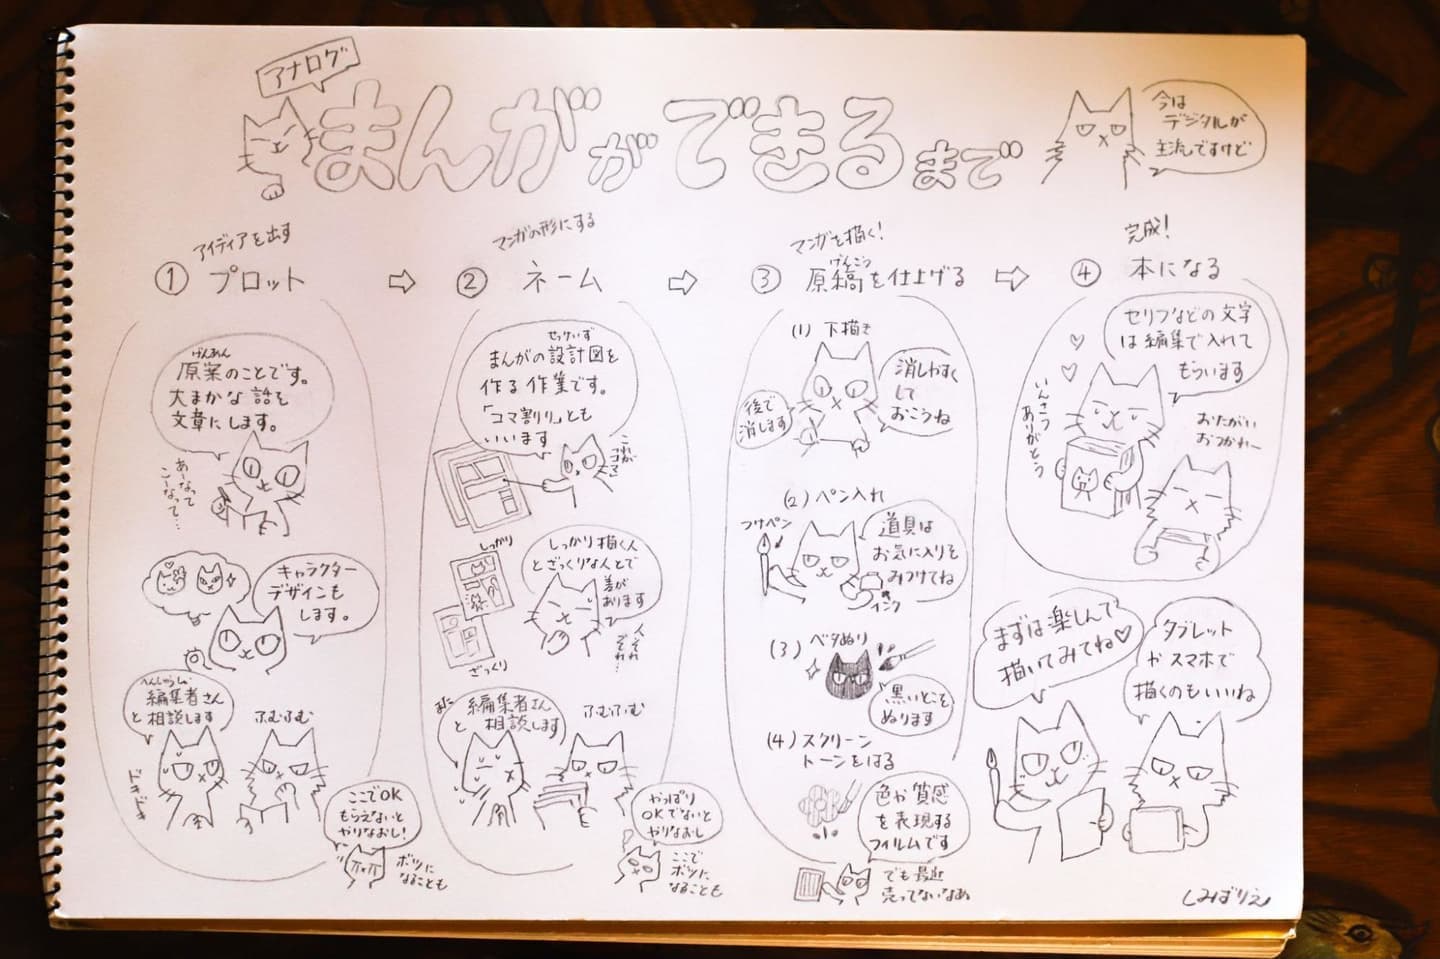 アナログ
まんがができるまで
今は
デジタルが
主流ですけど
アイディアを出す
① プロット
げんあん
原案のことです。
大まかな話を
文章にします。
あーなって
こーなって…
キャラクター
デザインも
します。
へんしゅうしゃ
編集者さん
と相談します
ふむふむ
ドキドキ
ここでOK
もらえないと
やりなおし!
ボツに
なることも
マンガの形にする
② ネーム
せっけいず
まんがの設計図を
作る作業です。
「コマ割り」とも
いいます
これが
コマ
しっかり
しっかり描く人
とざっくりな人とで
差が
あります
人それ
ぞれ…
ざっくり
また
編集者さん
と相談します
ふむふむ
やっぱり
OKでないと
やりなおし
ここで
ボツに
なることも
マンガを描く!
げんこう
③ 原稿を仕上げる
(1) 下描き
消しやすく
して
おこうね
後で
消します
(2) ペン入れ
つけペン
道具は
お気に入りを
みつけてね
インク
(3) ベタぬり
黒いところを
ぬります
(4) スクリーン
トーンをはる
色や質感
を表現する
フィルムです
でも最近
売ってないなぁ
完成!
④ 本になる
セリフなどの文字
は編集で入れて
もらいます
いんさつ
ありがとう
おたがい
おつかれー
まずは楽しんで
描いてみてね♡
タブレット
やスマホで
描くのもいいね
しみばりえ